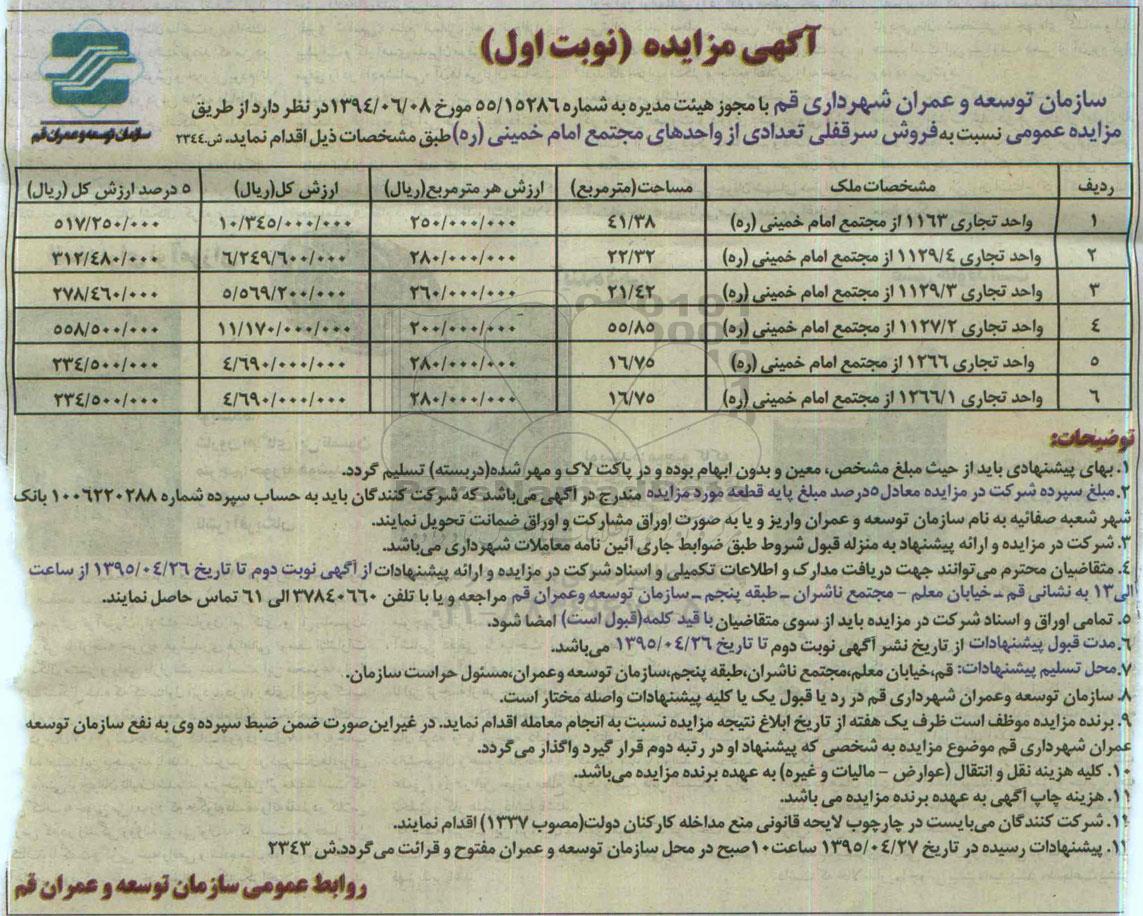 آگهی مزایده (نوبت اول)
سازمان توسعه و عمران قم
سازمان توسعه و عمران شهرداری قم با مجوز هیئت مدیره به شماره ۵۵/۱۵۲۸۶ مورخ ۱۳۹٤/۰۶/۰۸ در نظر دارد از طریق
مزایده عمومی نسبت به فروش سرقفلی تعدادی از واحدهای مجتمع امام خمینی (ره) طبق مشخصات ذیل اقدام نماید. ش.۲۳٤٤
ردیف مشخصات ملک مساحت(مترمربع) ارزش هر مترمربع(ریال) ارزش کل(ریال) ۵ درصد ارزش کل (ریال)
۱ واحد تجاری ۱۱۶۳ از مجتمع امام خمینی (ره) ٤۱/۳۸ ۲۵۰/۰۰۰/۰۰۰ ۱۰/۳٤۵/۰۰۰/۰۰۰ ۵۱۷/۲۵۰/۰۰۰
۲ واحد تجاری ۱۱۲۹/٤ از مجتمع امام خمینی (ره) ۲۲/۳۲ ۲۸۰/۰۰۰/۰۰۰ ۶/۲٤۹/۶۰۰/۰۰۰ ۳۱۲/٤۸۰/۰۰۰
۳ واحد تجاری ۱۱۲۹/۳ از مجتمع امام خمینی (ره) ۲۱/٤۲ ۲۶۰/۰۰۰/۰۰۰ ۵/۵۶۹/۲۰۰/۰۰۰ ۲۷۸/٤۶۰/۰۰۰
٤ واحد تجاری ۱۱۲۷/۲ از مجتمع امام خمینی (ره) ۵۵/۸۵ ۲۰۰/۰۰۰/۰۰۰ ۱۱/۱۷۰/۰۰۰/۰۰۰ ۵۵۸/۵۰۰/۰۰۰
۵ واحد تجاری ۱۲۶۶ از مجتمع امام خمینی (ره) ۱۶/۷۵ ۲۸۰/۰۰۰/۰۰۰ ٤/۶۹۰/۰۰۰/۰۰۰ ۲۳٤/۵۰۰/۰۰۰
۶ واحد تجاری ۱۲۶۶/۱ از مجتمع امام خمینی (ره) ۱۶/۷۵ ۲۸۰/۰۰۰/۰۰۰ ٤/۶۹۰/۰۰۰/۰۰۰ ۲۳٤/۵۰۰/۰۰۰
توضیحات:
۱. بهای پیشنهادی باید از حیث مبلغ مشخص، معین و بدون ابهام بوده و در پاکت لاک و مهر شده(دربسته) تسلیم گردد.
۲. مبلغ سپرده شرکت در مزایده معادل۵درصد مبلغ پایه قطعه مورد مزایده مندرج در آگهی می‌باشد که شرکت کنندگان باید به حساب سپرده شماره ۱۰۰۶۲۲۰۲۸۸ بانک
شهر شعبه صفائیه به نام سازمان توسعه و عمران واریز و یا به صورت اوراق مشارکت و اوراق ضمانت تحویل نمایند.
۳. شرکت در مزایده و ارائه پیشنهاد به منزله قبول شروط طبق ضوابط جاری آئین نامه معاملات شهرداری می‌باشد.
٤. متقاضیان محترم می‌توانند جهت دریافت مدارک و اطلاعات تکمیلی و اسناد شرکت در مزایده و ارائه پیشنهادات از آگهی نوبت دوم تا تاریخ ۱۳۹۵/۰٤/۲۶ از ساعت
الی۱۳ به نشانی قم - خیابان معلم - مجتمع ناشران - طبقه پنجم - سازمان توسعه وعمران قم مراجعه و یا با تلفن ۳۷۸٤۰۶۶۰ الی ۶۱ تماس حاصل نمایند.
۵. تمامی اوراق و اسناد شرکت در مزایده باید از سوی متقاضیان با قید کلمه(قبول است) امضا شود.
۶.مدت قبول پیشنهادات از تاریخ نشر آگهی نوبت دوم تا تاریخ ۱۳۹۵/۰٤/۲۶ می‌باشد.
۷.محل تسلیم پیشنهادات: قم،خیابان معلم،مجتمع ناشران،طبقه پنجم،سازمان توسعه وعمران،مسئول حراست سازمان.
۸. سازمان توسعه وعمران شهرداری قم در رد یا قبول یک یا کلیه پیشنهادات واصله مختار است.
۹. برنده مزایده موظف است ظرف یک هفته از تاریخ ابلاغ نتیجه مزایده نسبت به انجام معامله اقدام نماید. در غیراین‌صورت ضمن ضبط سپرده وی به نفع سازمان توسعه
عمران شهرداری قم موضوع مزایده به شخصی که پیشنهاد او در رتبه دوم قرار گیرد واگذار می‌گردد.
۱۰. کلیه هزینه نقل و انتقال (عوارض - مالیات و غیره) به عهده برنده مزایده می‌باشد.
۱۱. هزینه چاپ آگهی به عهده برنده مزایده می باشد.
۱۲. شرکت کنندگان می‌بایست در چارچوب لایحه قانونی منع مداخله کارکنان دولت(مصوب ۱۳۳۷) اقدام نمایند.
پیشنهادات رسیده در تاریخ ۱۳۹۵/۰٤/۲۷ ساعت۱۰صبح در محل سازمان توسعه و عمران مفتوح و قرائت می‌گردد.ش ۲۳٤۳
روابط عمومی سازمان توسعه و عمران قم